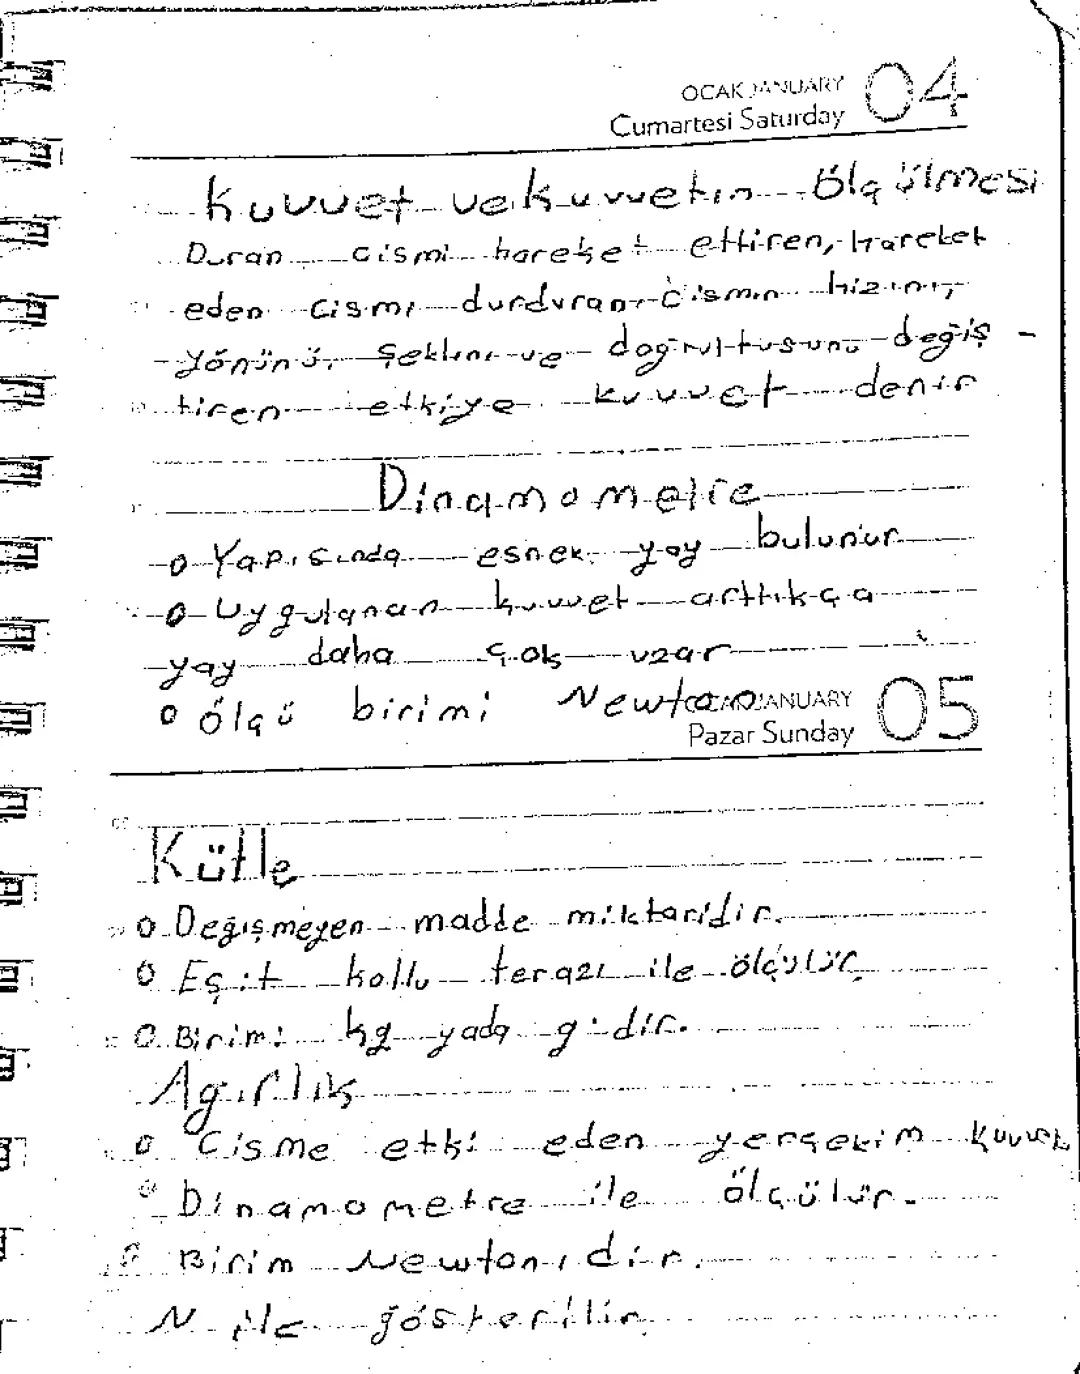 OCAK JANUARY 04
Cumartesi Saturday
Kuvvet ve Kuvvetin Ölçülmesi
Duran cismi hareket ettiren, Hareket
eden cismi durduran, cismin hızını,
yönünü, şeklini ve doğrultusunu değiş -
tiren etkiye kuvvet denir
Dinamometre
o Yapısında esnek yay bulunur
o Uygulanan kuvvet arttıkça
yay daha çok uzar
o ölçü birimi Newton
JANUARY 05
Pazar Sunday
Kütle
o Değişmeyen madde miktarıdır.
o Eşit kollu terazi ile ölçülür.
o Birimi kg yada g'dir.
Agırlık
o Cisme etki eden yerçekim kuvvet
o Dinamometre ile ölçülür.
o Birim Newton'dir.
N ile gösterilir.